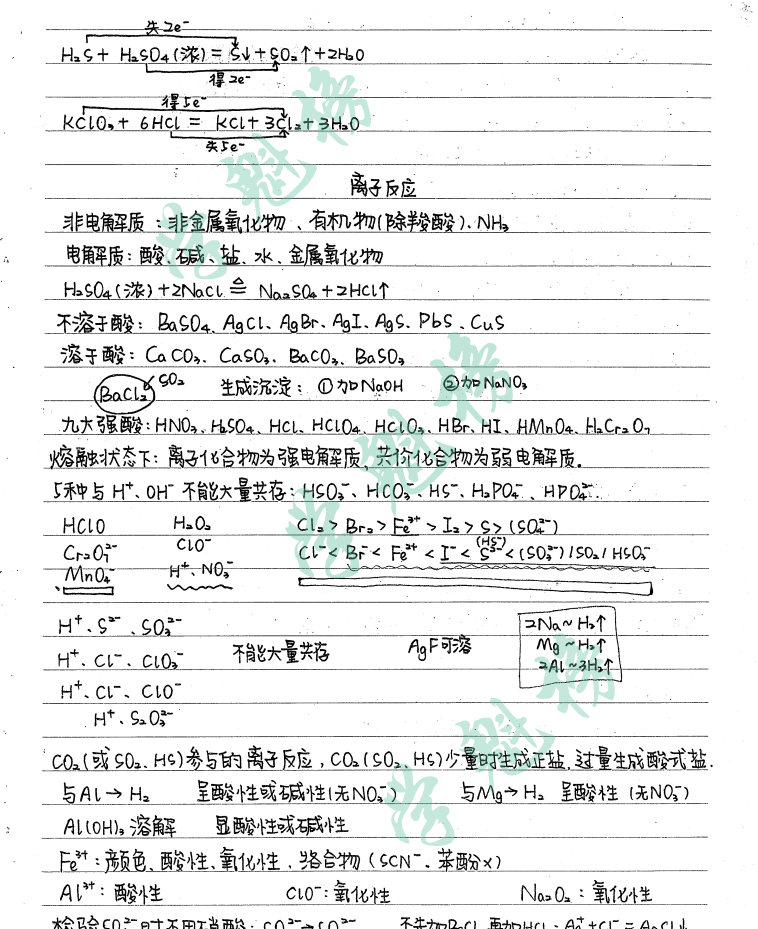 失2e⁻
H₂S + H₂SO₄(浓) = S↓ + SO₂↑ + 2H₂O
得2e⁻
得5e⁻
KClO₃ + 6HCl = KCl + 3Cl₂ + 3H₂O
失5e⁻
离子反应
非电解质：非金属氧化物、有机物(除羧酸)、NH₃
电解质：酸、碱、盐、水、金属氧化物
H₂SO₄(浓) + 2NaCl ≜ Na₂SO₄ + 2HCl↑
不溶于酸：BaSO₄、AgCl、AgBr、AgI、AgS、PbS、CuS
溶于酸：CaCO₃、CaSO₃、BaCO₃、BaSO₃
BaCl₂ SO₂ 生成沉淀：①加NaOH ②加NaNO₃
九大强酸：HNO₃、H₂SO₄、HCl、HClO₄、HClO₃、HBr、HI、HMnO₄、H₂Cr₂O₇
熔融状态下：离子化合物为强电解质，共价化合物为弱电解质.
5种与H⁺、OH⁻不能大量共存：HSO₃⁻、HCO₃⁻、HS⁻、H₂PO₄⁻、HPO₄²⁻.
HClO H₂O₂ Cl₂ > Br₂ > Fe³⁺ > I₂ > S > (SO₄²⁻)
Cr₂O₇²⁻ ClO⁻ Cl⁻ < Br⁻ < Fe²⁺ < I⁻ < S²⁻(HS⁻) < (SO₃²⁻)/SO₂/HSO₃⁻
MnO₄⁻ H⁺、NO₃⁻
H⁺、S²⁻、SO₃²⁻ 2Na~H₂↑
H⁺、Cl⁻、ClO₃⁻ 不能大量共存 AgF可溶 Mg~H₂↑
2Al~3H₂↑
H⁺、Cl⁻、ClO⁻
H⁺、S₂O₃²⁻
CO₂(或SO₂、HS)参与的离子反应，CO₂(SO₂、HS)少量时生成正盐，过量生成酸式盐.
与Al→H₂ 呈酸性或碱性(无NO₃⁻) 与Mg→H₂ 呈酸性(无NO₃⁻)
Al(OH)₃溶解 显酸性或碱性
Fe³⁺：颜色、酸性、氧化性、络合物(SCN⁻、苯酚×)
Al³⁺：酸性 ClO⁻：氧化性 Na₂O₂：氧化性
检验SO₄²⁻时不用硝酸：SO₃²⁻→SO₄²⁻ 不先加BaCl₂再加HCl：Ag⁺+Cl⁻=AgCl↓
学魁榜
学魁榜
学魁榜